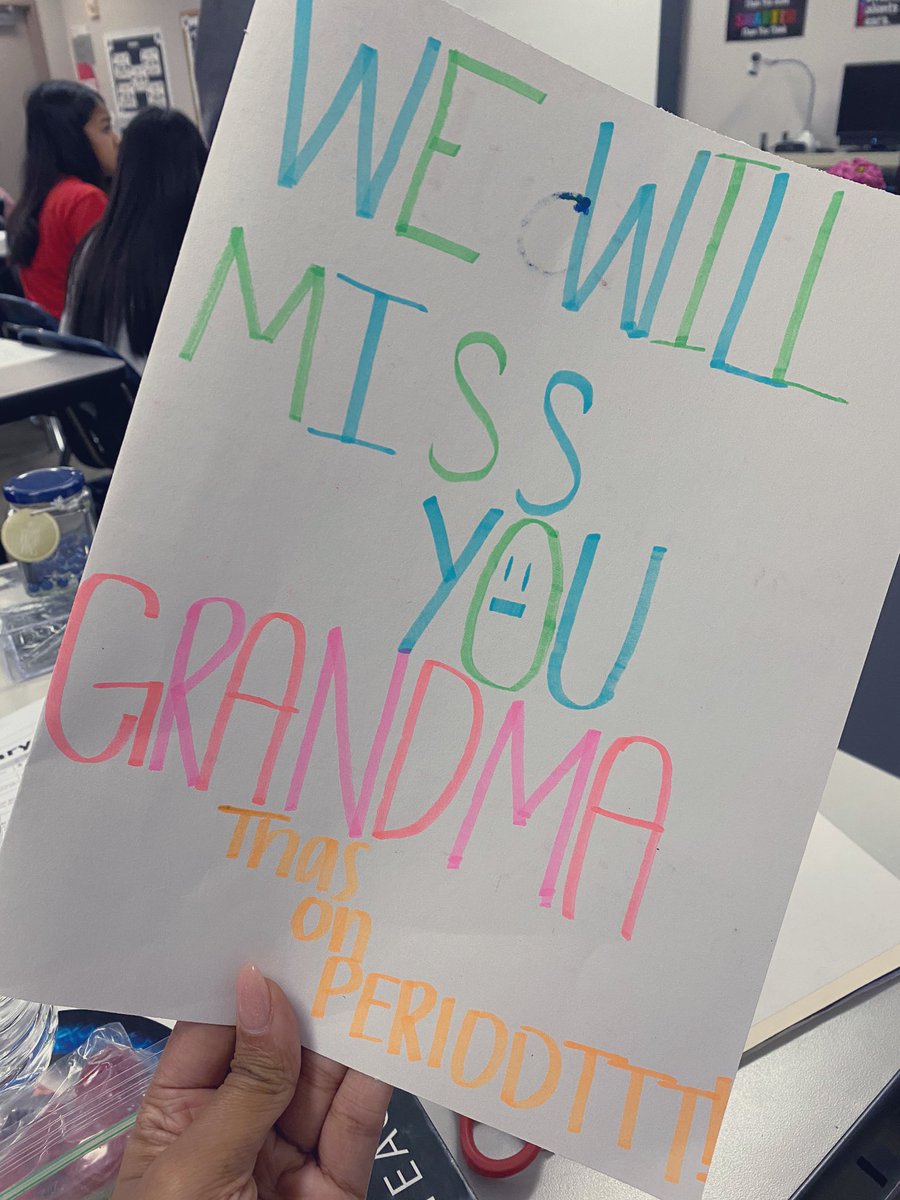 WE WILL
MISS
YOU
GRANDMA
Thas
on
PERIODTTT!